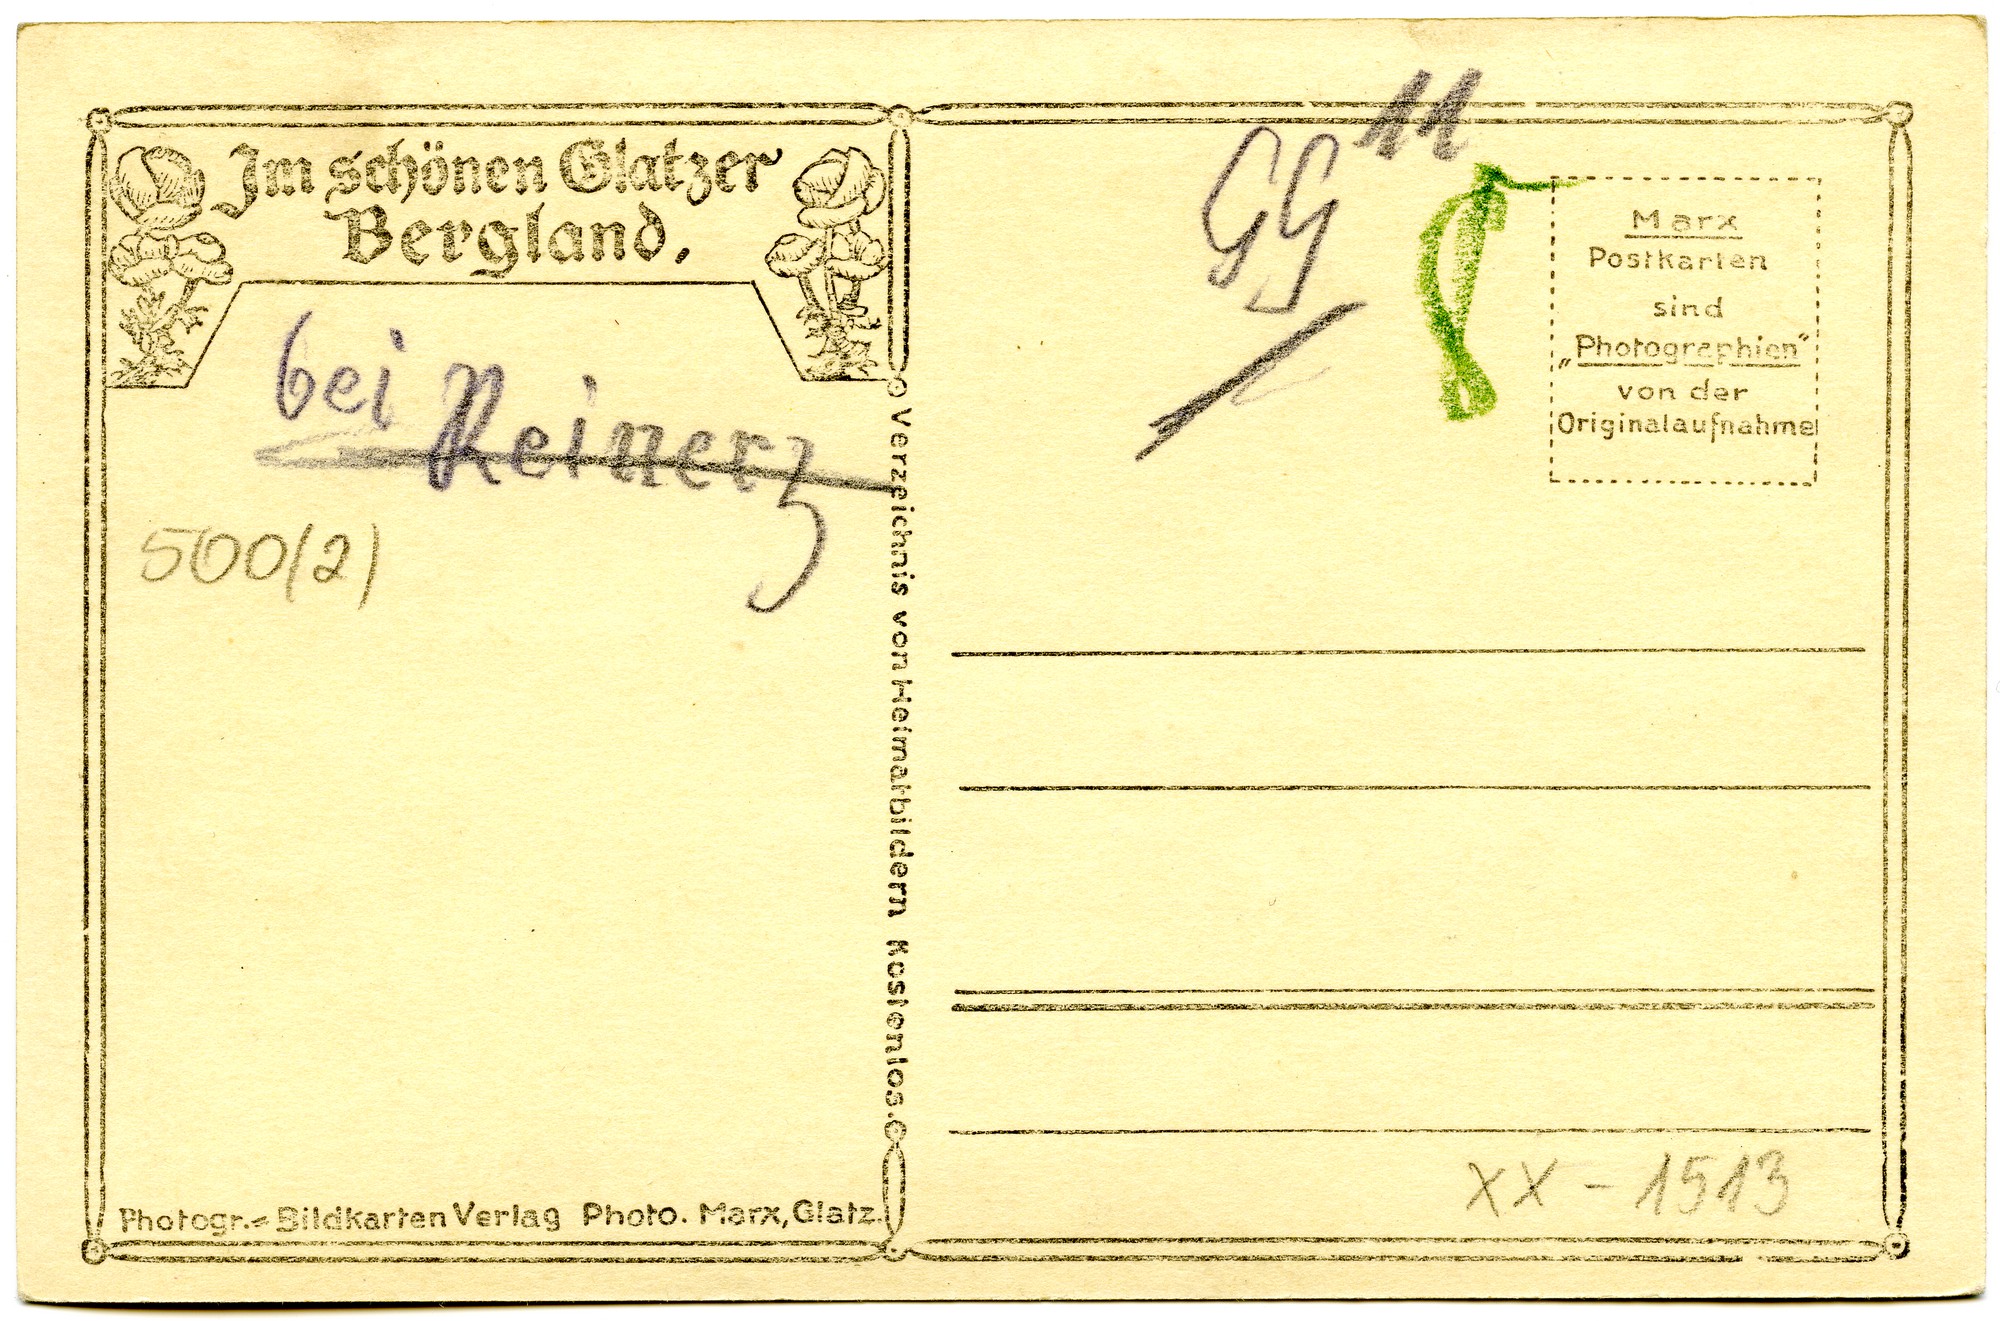 Im schönen Glatzer
Bergland.
bei Reinerz
500/2/
Verzeichnis von Heimatbildern Kostenlos.
Photogr.=Bildkarten Verlag Photo. Marx, Glatz.
GG 11
Marx
Postkarten
sind
„Photographien“
von der
Originalaufnahme
XX - 1513